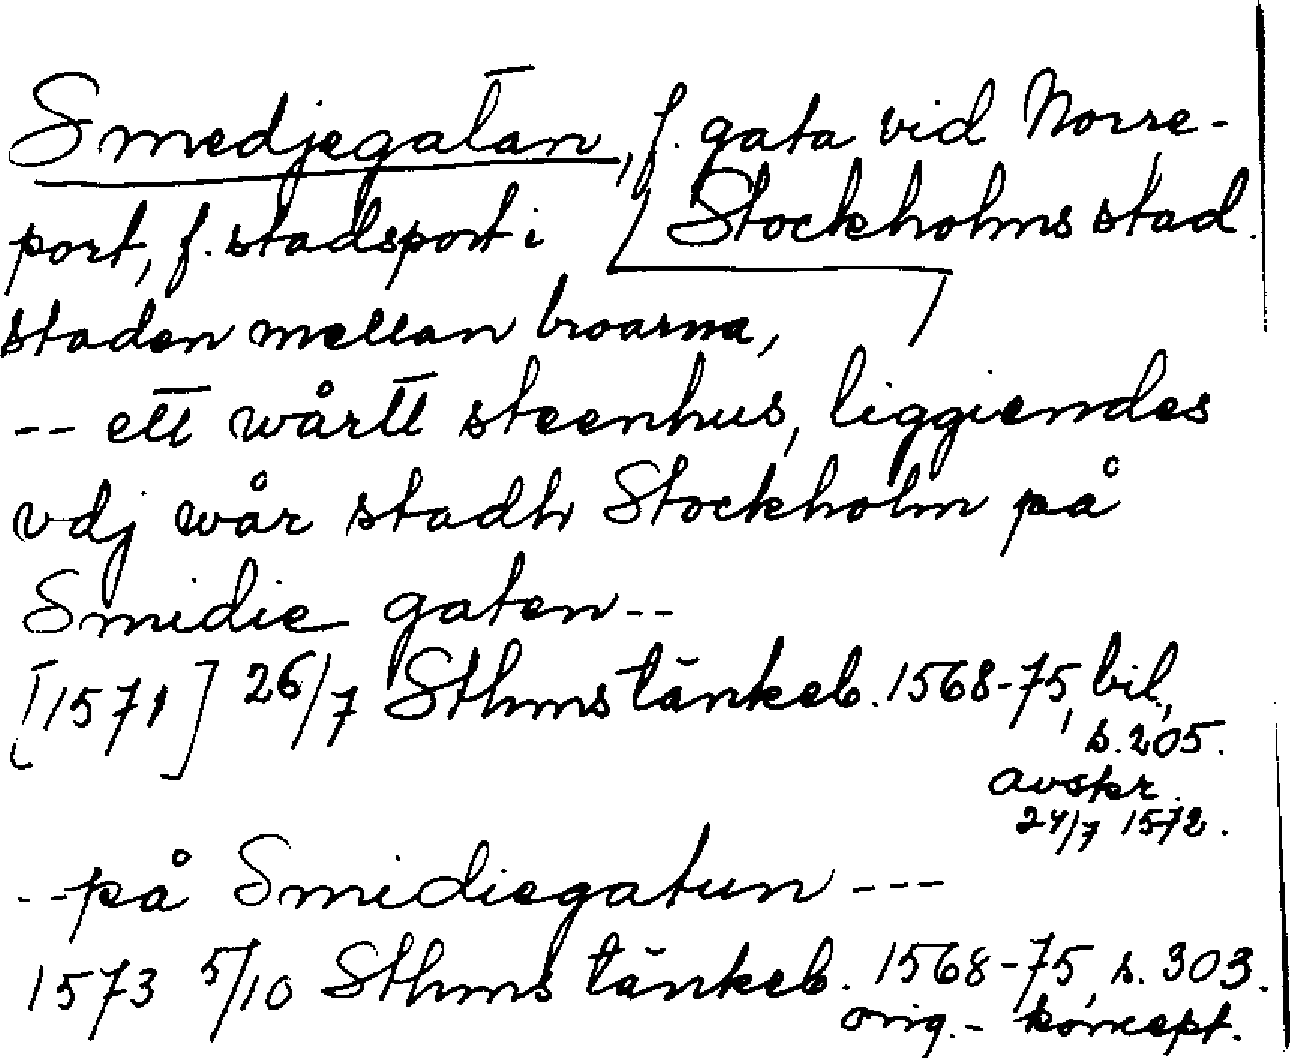 Smedjegatan, f. gata vid Norre-
port, f. stadsport i Stockholms stad.
staden mellan broarna,
-- ett wårtt steenhus, liggiendes
vdj wår stadh Stockholm på
Smidie gaten--
[1571] 26/7 Sthms tänkeb. 1568-75, bil,
s. 205.
avskr.
24/7 1572.
--på Smidiegatun ---
1573 5/10 Sthms tänkeb. 1568-75, s. 303.
orig.- koncept.